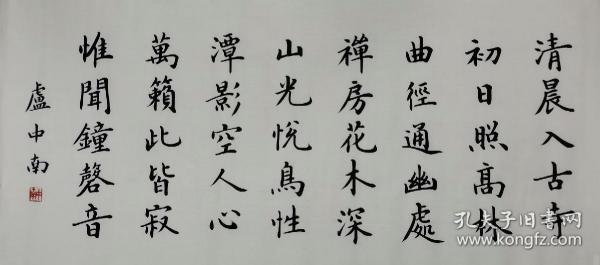 清晨入古寺
初日照高林
曲徑通幽處
禪房花木深
山光悦鳥性
潭影空人心
萬籟此皆寂
惟聞鐘磬音
盧中南
孔夫子旧书网
www.kongfz.com